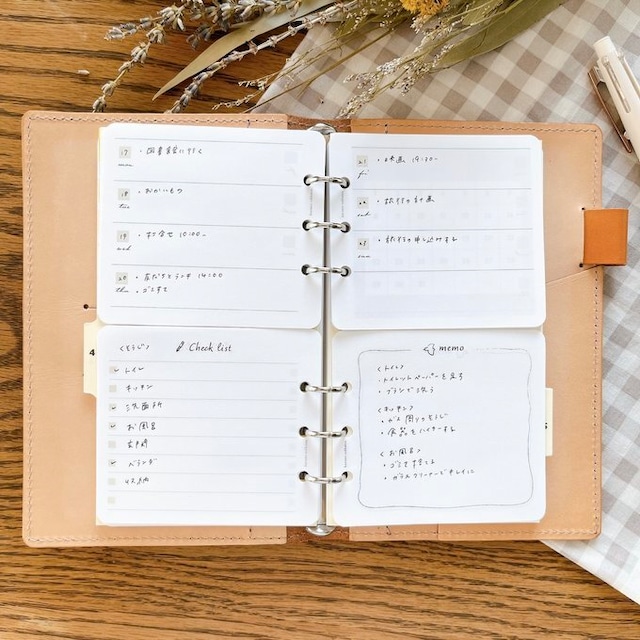 17
・図書館に行く
mon
18
・おかいもの
tue
19
・打合せ 10:00~
wed
20
・友だちとランチ 14:00
・ゴミすて
thu
21
・映画 19:30~
fri
22
・旅行の計画
sat
23
・旅行の申し込みする
sun
4
<そうじ>
Check list
トイレ
キッチン
洗面所
お風呂
玄関
ベランダ
収納
memo
<トイレ>
・トイレットペーパーを足す
・ブラシで洗う
<キッチン>
・ガス周りのそうじ
・食器をハイターする
<お風呂>
・ゴミをすてる
・ガラスクリーナーでキレイに